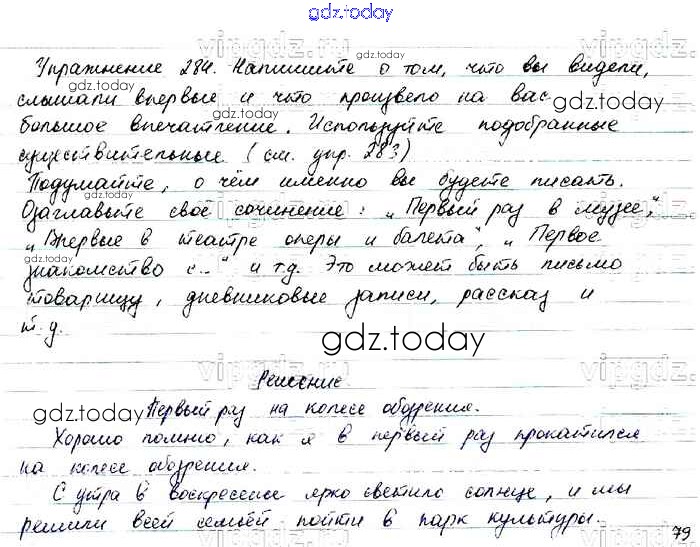 gdz.today
Упражнение 284. Напишите о том, что вы видели,
слышали впервые и что произвело на вас
большое впечатление. Используйте подобранные
существительные (см. упр. 283)
Подумайте, о чём именно вы будете писать.
Озаглавьте своё сочинение: „Первый раз в музее",
„Впервые в театре оперы и балета", „Первое
знакомство с..." и т.д. Это может быть письмо
товарищу, дневниковые записи, рассказ и
т.д.
gdz.today
Решение
Первый раз на колесе обозрения.
Хорошо помню, как я в первый раз прокатился
на колесе обозрения.
С утра в воскресенье ярко светило солнце, и мы
решили всей семьёй пойти в парк культуры.
79